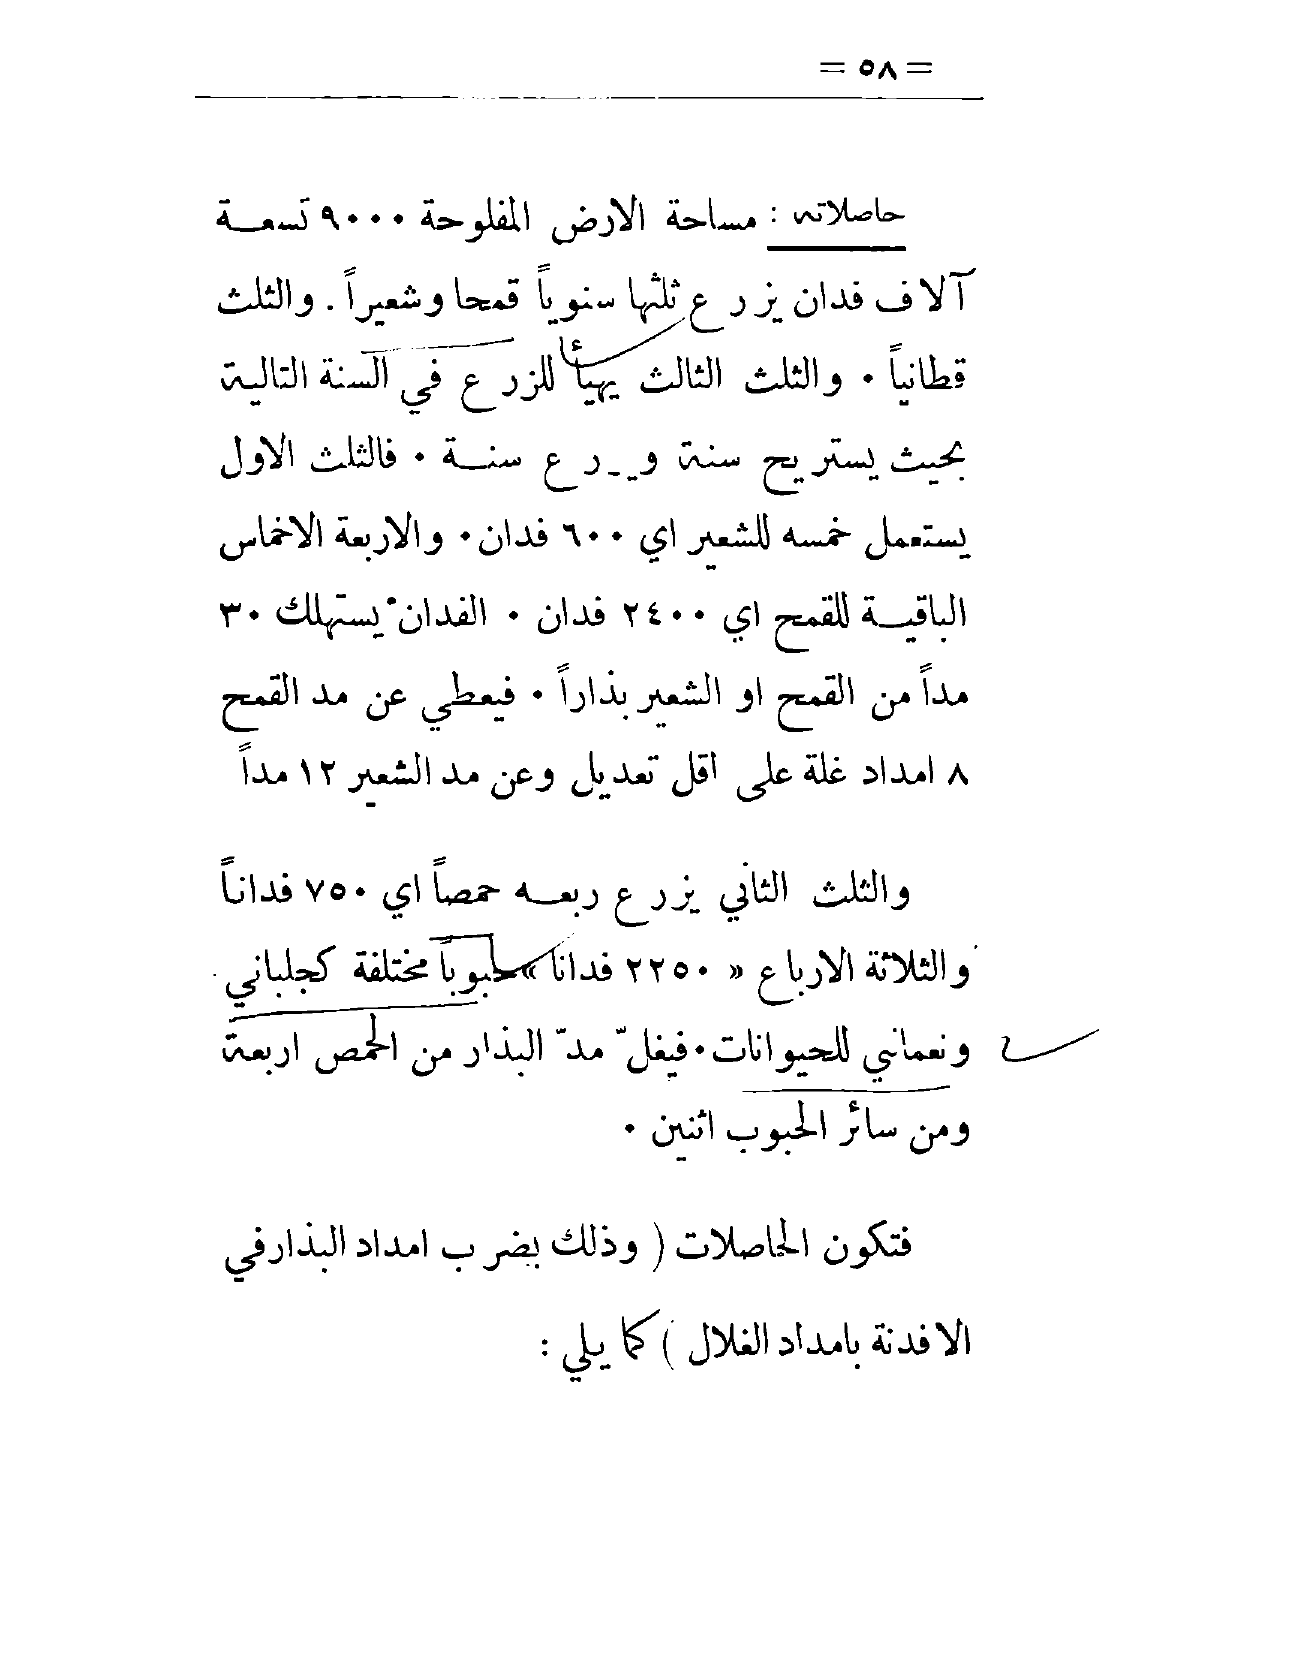 = ٥٨ =
حاصلاته : مساحة الارض المفلوحة ٩٠٠٠ تسعـة
آلاف فدان يزرع ثلثها سنوياً قمحا وشعيراً . والثلث
قطانياً ٠ والثلث الثالث يهيأ للزرع في السنة التالية
بحيث يستريح سنة و رع سنـة ٠ فالثلث الاول
يستعمل خمسه للشعير اي ٦٠٠ فدان ٠ والاربعة الاخماس
الباقيـة للقمح اي ٢٤٠٠ فدان ٠ الفدان يستهلك ٣٠
مداً من القمح او الشعير بذاراً ٠ فيعطي عن مد القمح
٨ امداد غلة على اقل تعديل وعن مد الشعير ١٢ مداً
والثلث الثاني يزرع ربعـه حمصاً اي ٧٥٠ فداناً
والثلاثة الارباع « ٢٢٥٠ فدانا » حبوباً مختلفة كجلباني
ونعماني للحيوانات ٠ فيغلّ مدّ البذار من الحمص اربعة
ومن سائر الحبوب اثنين ٠
فتكون الحاصلات ( وذلك بضرب امداد البذار في
الافدنة بامداد الغلال ) كما يلي :